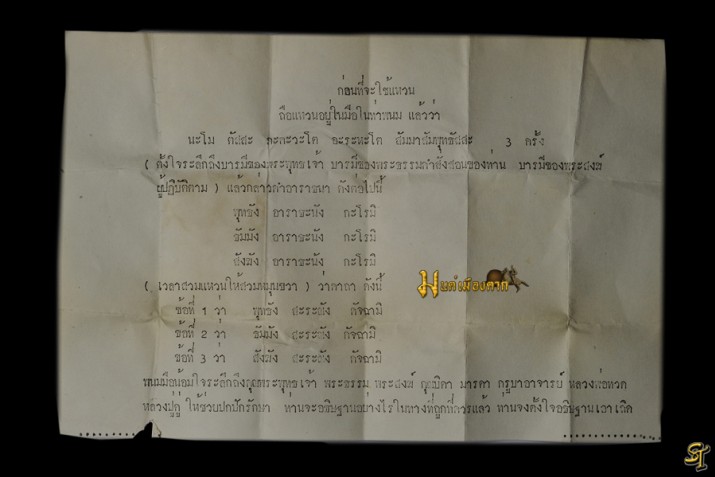 ก่อนที่จะใช้แหวน
ถือแหวนอยู่ในมือในท่าพนม แล้วว่า
นะโม ตัสสะ ภะคะวะโต อะระหะโต สัมมาสัมพุทธัสสะ 3 ครั้ง
( ตั้งใจระลึกถึงบารมีของพระพุทธเจ้า บารมีของพระธรรมคำสั่งสอนของท่าน บารมีของพระสงฆ์
ผู้ปฏิบัติตาม ) แล้วกล่าวคำอาราธนา ดังต่อไปนี้
พุทธัง อาราธะนัง กะโรมิ
ธัมมัง อาราธะนัง กะโรมิ
สังฆัง อาราธะนัง กะโรมิ
( เวลาสวมแหวนให้สวมหมุนขวา ) ว่าคาถา ดังนี้
มนต์เมืองตาก
ข้อที่ 1 ว่า พุทธัง สะระณัง คัจฉามิ
ข้อที่ 2 ว่า ธัมมัง สะระณัง คัจฉามิ
ข้อที่ 3 ว่า สังฆัง สะระณัง คัจฉามิ
พนมมือน้อมใจระลึกถึงคุณพระพุทธเจ้า พระธรรม พระสงฆ์ คุณบิดา มารดา ครูบาอาจารย์ หลวงพ่อทวด
หลวงปู่ดู่ ให้ช่วยปกปักรักษา ท่านจะอธิษฐานอย่างไรในทางที่ถูกที่ควรแล้ว ท่านจงตั้งใจอธิษฐานเอาเถิด
ST